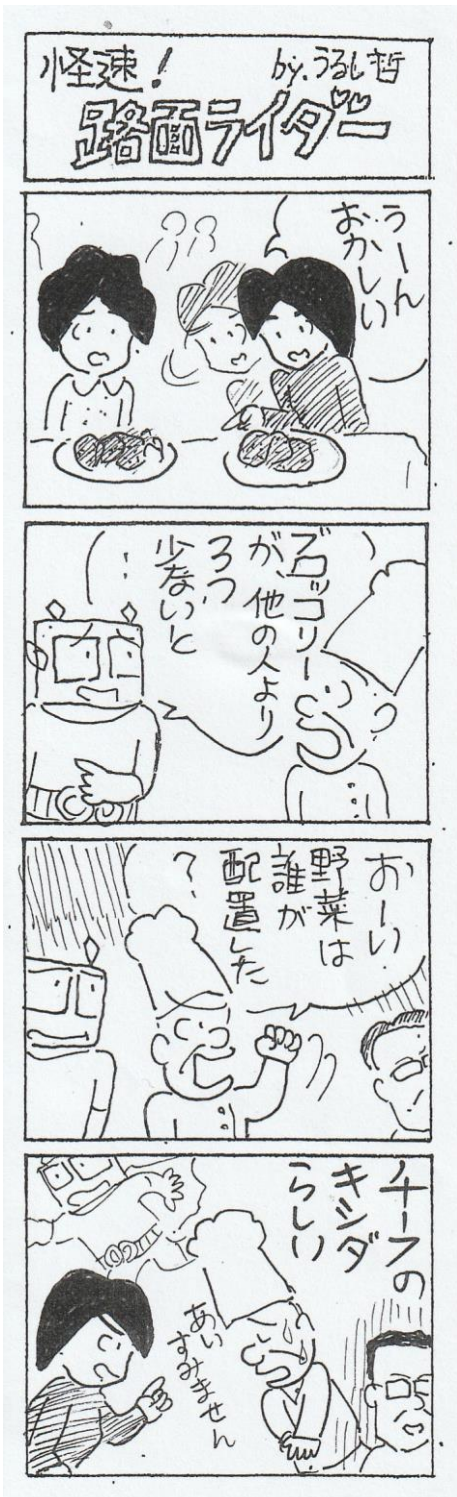 怪速！
by.うるし哲
路面ライダー
うーん
おかしい
ブロッコリー
が、他の人より
3つ
少ないと
…
おーい
野菜は
誰が
配置した
？
チーフの
キシダ
らしい
あい
すみません